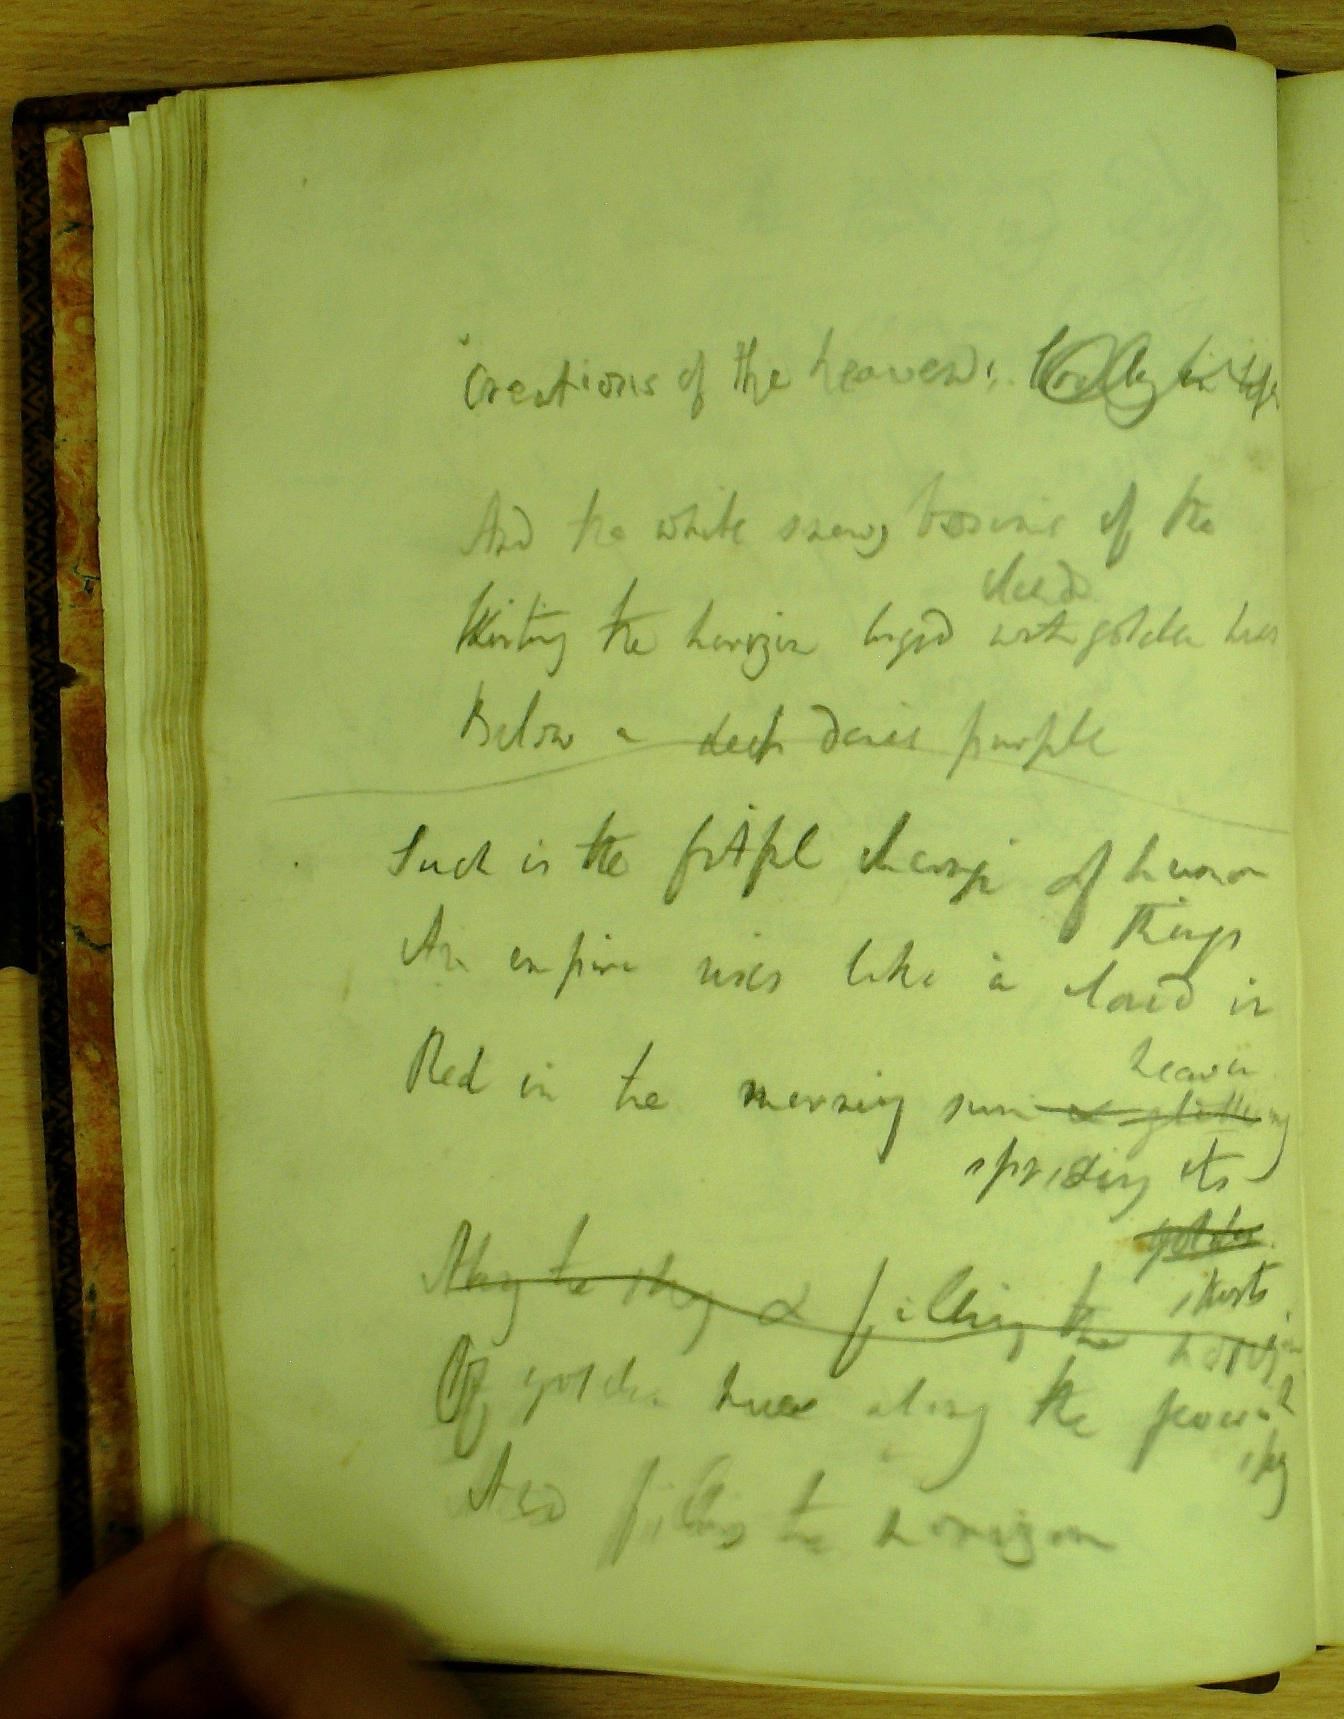 Creations of the heavens:
And the white snowy bosoms of the
cloud
Skirting the horizon tinged with golden hues
Below a deep purple
Such is the fitful change of human
things
An empire rises like a cloud in
heaven
Red in the morning sun & glittering
spreding its
golden
skirts
Along the sky & filling the horizon
Of golden hues along the
sky
And filling the horizon